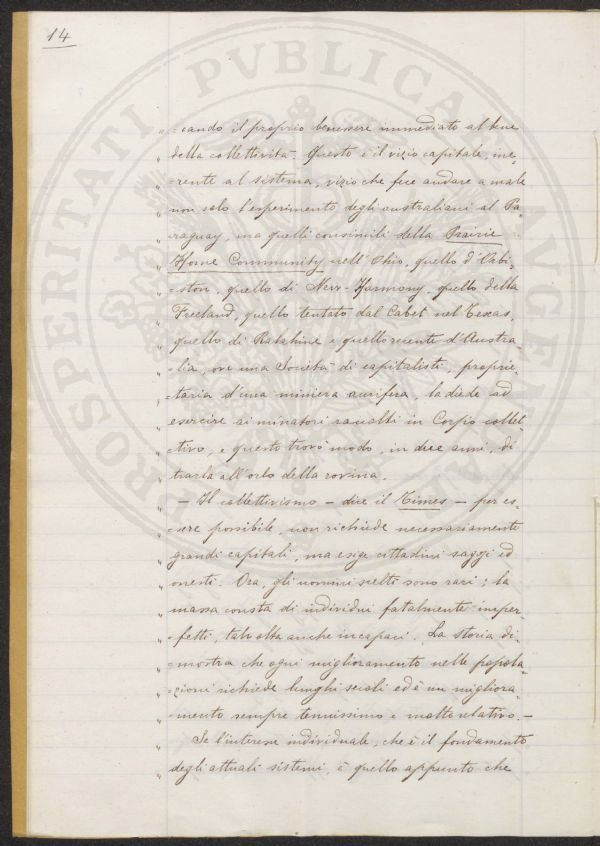 14
PROSPERITATI PVBLICAE AVGENDAE
„ =cando il proprio benessere immediato al bene
„ della collettività. Questo è il vizio capitale, ine=
„ =rente al sistema, vizio che fece andare a male
„ non solo l'esperimento degli australiani al Pa=
„ raguay, ma quelli consimili della Prairie
„ Home Community nell'Ohio, quello d'Orbi=
„ =ston, quello di New-Harmony, quello della
„ Freeland, quello tentato dal Cabet nel Texas,
„ quello di Ralahine e quello recente d'Austra=
„ =lia, ove una Società di capitalisti, proprie=
„ =taria d'una miniera aurifera, la diede ad
„ esercire ai minatori raccolti in Corpo collet=
„ =tivo, e questo trovò modo, in due anni, di
„ trarla all'orlo della rovina.
„ — Il collettivismo — dice il Times — per es=
„ =sere possibile, non richiede necessariamente
„ grandi capitali, ma esige cittadini saggi ed
„ onesti. Ora, gli uomini scelti sono rari; la
„ massa consta di individui fatalmente imper=
„ =fetti, talvolta anche incapaci. La storia di=
„ =mostra che ogni miglioramento nelle popola=
„ =zioni richiede lunghi secoli ed è un migliora=
„ =mento sempre tenuissimo e molto relativo. —
„ Se l'interesse individuale, che è il fondamento
„ degli attuali sistemi, è quello appunto che